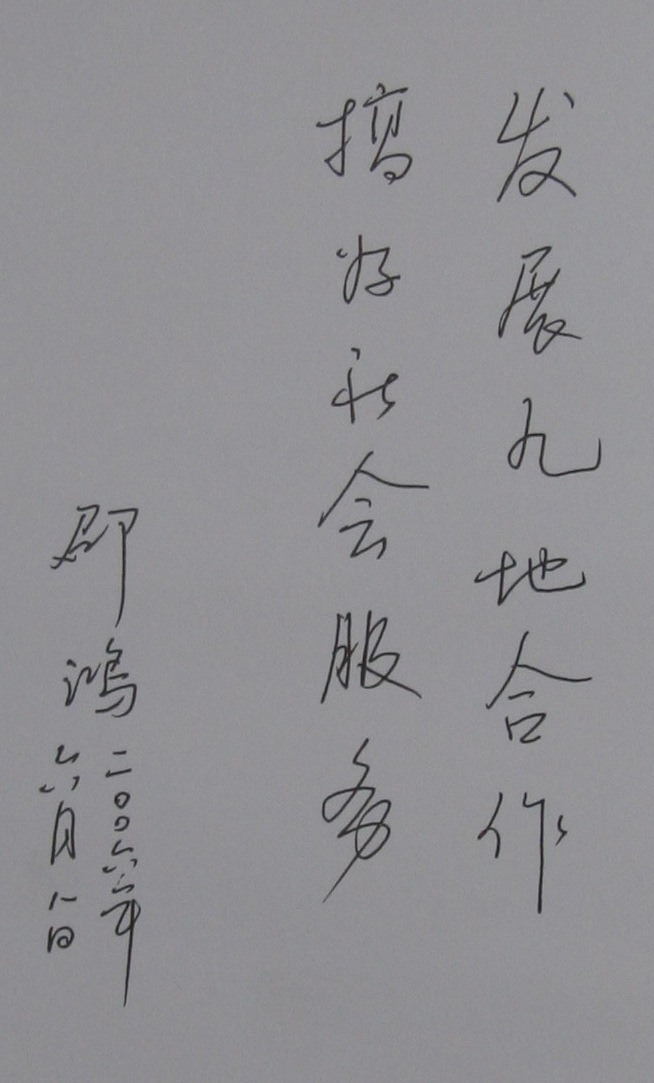 发展九地合作
搞好社会服务
邵鸿
二〇〇六年
六月八日